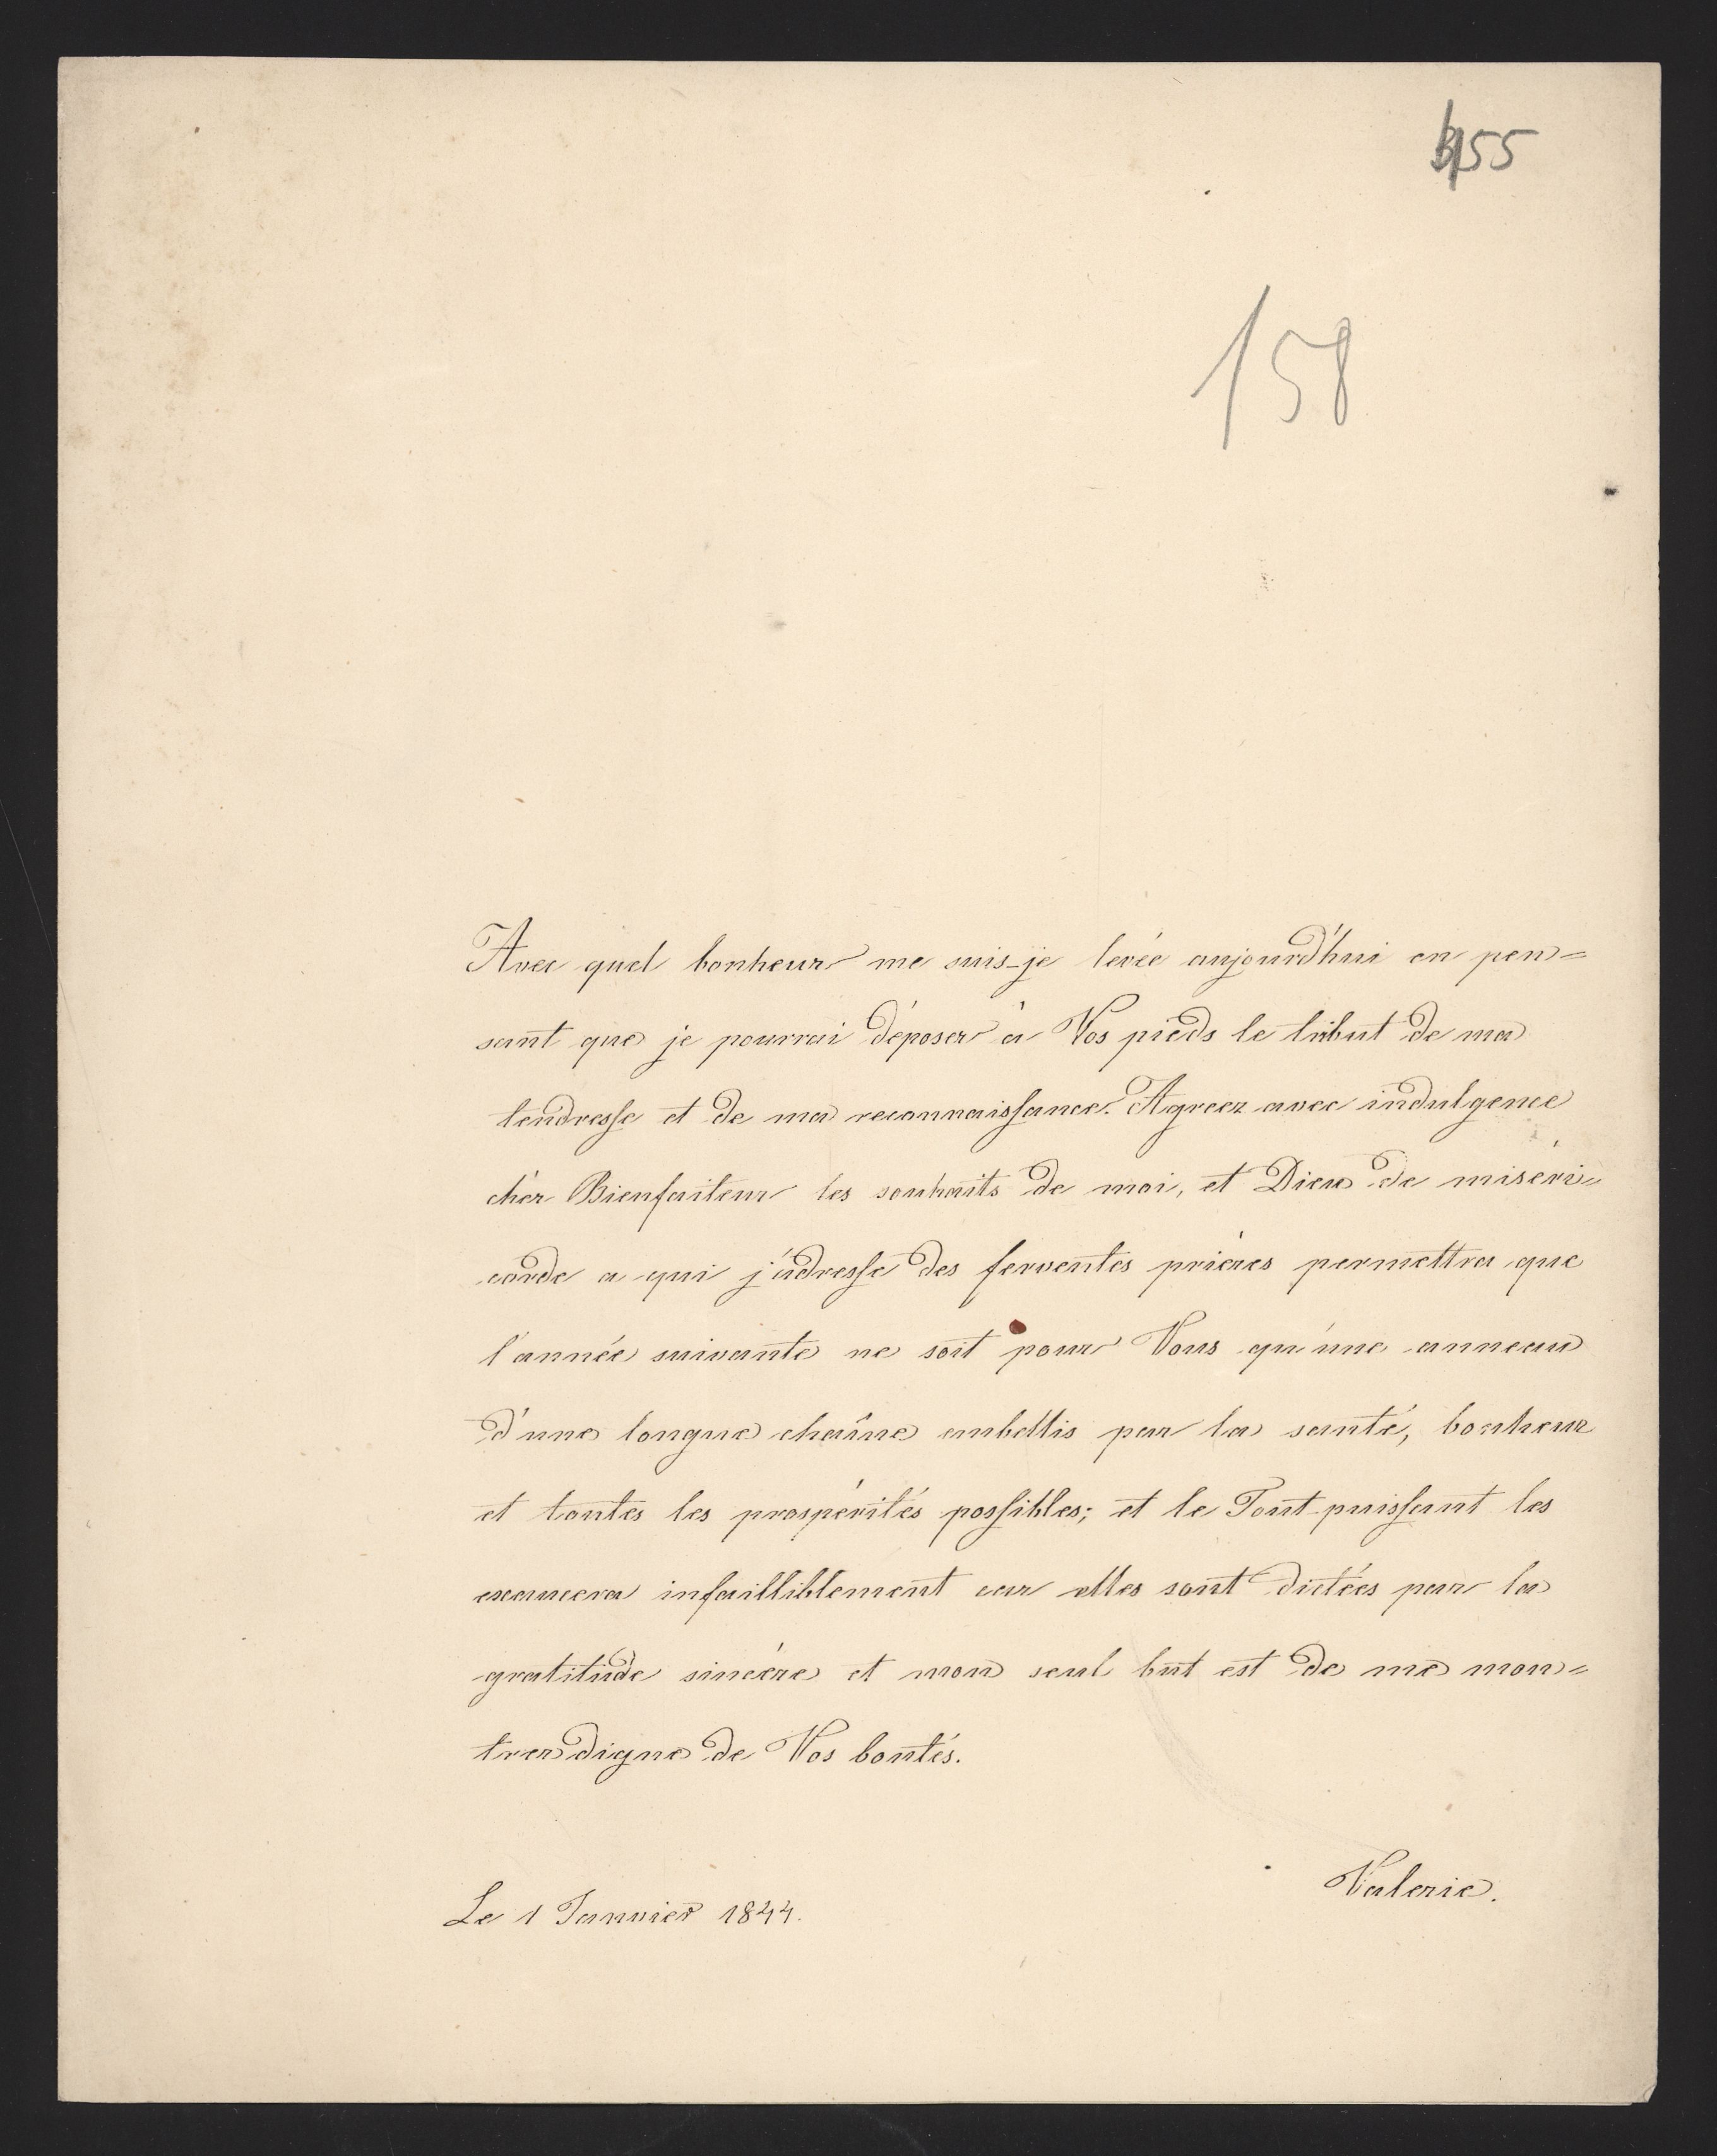 155
158
Avec quel bonheur me suis-je levée aujourd'hui en pen=
sant que je pourrai déposer à Vos pieds le tribut de ma
tendresse et de ma reconnaissance. Agreez avec indulgence
cher Bienfaiteur les souhaits de moi, et Dieu de miséri=
corde a qui j'adresse des ferventes prières permettra que
l'année suivante ne soit pour Vous qu'une anneau
d'une longue chaîne embellis par la santé, bonheur
et toutes les prospérités possibles; et le Tout-puissant les
exaucera infailliblement car elles sont dictées par la
gratitude sincère et mon seul but est de me mon=
trer digne de Vos bontés.
Valerie.
Le 1 Janvier 1844.